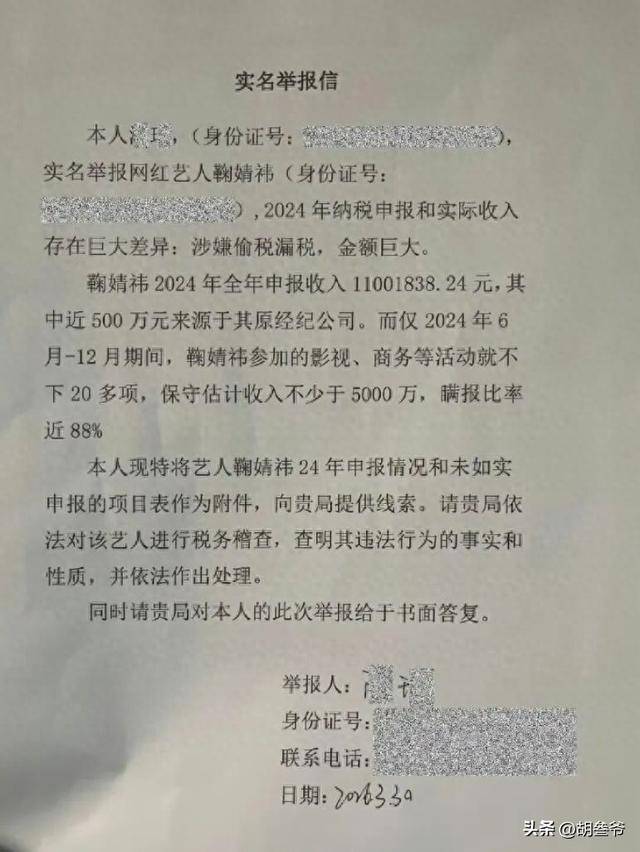 实名举报信
本人，（身份证号：），
实名举报网红艺人鞠婧祎（身份证号：
），2024年纳税申报和实际收入
存在巨大差异：涉嫌偷税漏税，金额巨大。
鞠婧祎2024年全年申报收入11001838.24元，其
中近500万元来源于其原经纪公司。而仅2024年6
月-12月期间，鞠婧祎参加的影视、商务等活动就不
下20多项，保守估计收入不少于5000万，瞒报比率
近88%
本人现特将艺人鞠婧祎24年申报情况和未如实
申报的项目表作为附件，向贵局提供线索。请贵局依
法对该艺人进行税务稽查，查明其违法行为的事实和
性质，并依法作出处理。
同时请贵局对本人的此次举报给于书面答复。
举报人：
身份证号：
联系电话：
日期：
头条 @胡叁爷